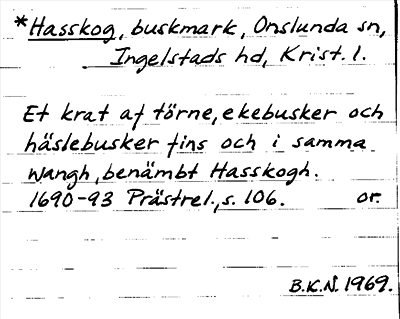 *Hasskog, buskmark, Onslunda sn,
Ingelstads hd, Krist. l.
Et krat af törne, ekebusker och
häslebusker fins och i samma
wangh, benämbt Hasskogh.
1690-93 Prästrel., s. 106. or.
B.K.N. 1969.